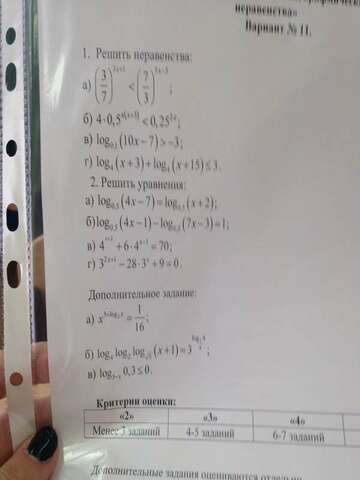 неравенства»
Вариант № 11.
1. Решить неравенства:
а) (3/7)^(3x+1) < (7/3)^(5x-3);
б) 4·0,5^(x(x+3)) < 0,25^(2x);
в) log_0,1 (10x − 7) > −3;
г) log_4 (x + 3) + log_4 (x + 15) ≤ 3.
2. Решить уравнения:
а) log_0,5 (4x − 7) = log_0,5 (x + 2);
б) log_0,5 (4x − 1) − log_0,5 (7x − 3) = 1;
в) 4^(x+1) + 6·4^(x−1) = 70;
г) 3^(2x+1) − 28·3^x + 9 = 0.
Дополнительное задание:
а) x^(5+log_2 x) = 1/16;
б) log_4 log_2 log_√5 (x + 1) = 3
в) log_(5−x) 0,3 ≤ 0.
Критерии оценки:
«2» «3» «4»
Менее 3 заданий 4-5 заданий 6-7 заданий
Дополнительные задания оцениваются отдельно